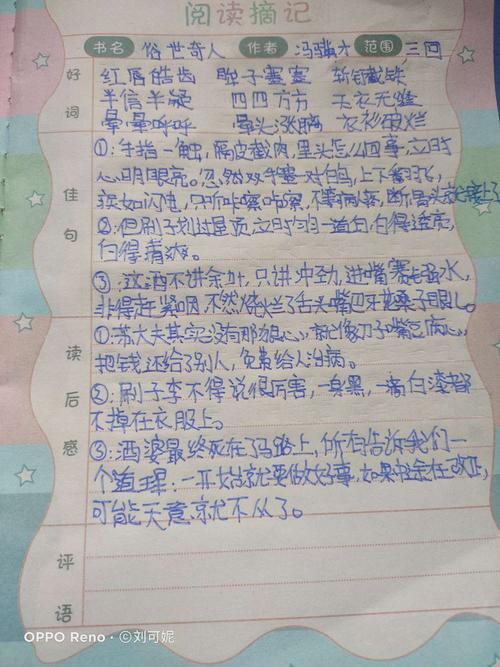 阅读摘记
书名 俗世奇人 作者 冯骥才 范围 三回
好词
红唇皓齿 脾子塞塞 斩钉截铁
半信半疑 四四方方 天衣无缝
晕晕呼呼 晕头涨脑 衣衫破烂
佳句
①:手指一触,隔皮截肉,里头怎么回事,立时
心明眼亮。忽然双手塞一对白鸟,上下翻飞,
疾如闪电,只听咔嚓咔嚓,不等病人疼,断骨头就接上了
②:但刷子划过屋顶,立时匀匀一道白,白得透亮,
白得清爽。
③:这酒不讲余味,只讲冲劲,进嘴赛镪水,
非得赶紧咽,不然烧烂了舌头嘴巴牙花嗓子眼儿。
读后感
①:苏大夫其实没有那狠心,就像刀子嘴豆腐心,
把钱还给了别人,免费给人治病。
②:刷子李不得说很厉害,一身黑,一滴白漆都
不掉在衣服上。
③:酒婆最终死在了马路上,所有告诉我们一
个道理:一开始就要做好事,如果 余在改正,
可能天意就不从了。
评语
OPPO Reno · ©刘可妮